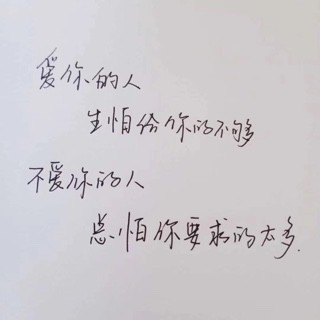 爱你的人
生怕给你的不够多
不爱你的人
总怕你要求的太多.